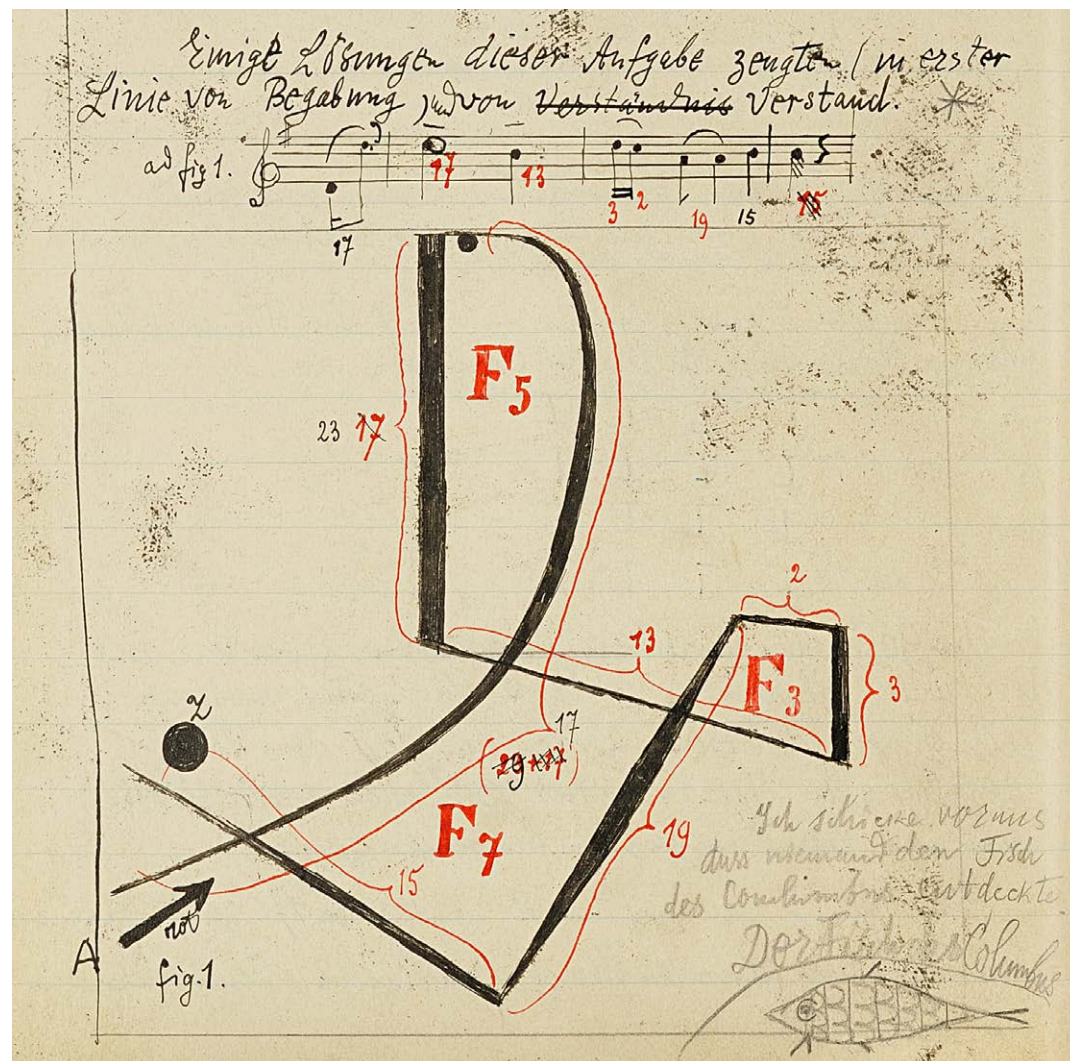 Einige Lösungen dieser Aufgabe zeugten (in erster
Linie von Begabung und von Verständnis Verstand.
ad fig 1.
17 13
3 2 19 15 15
17
F5
23 17
2
13
F3
3
Z
17
(29+17)
F7
19
15
rot
A
fig.1.
Ich schicke voraus
dass niemand den Fisch
des Columbus entdeckte
Der Columbus